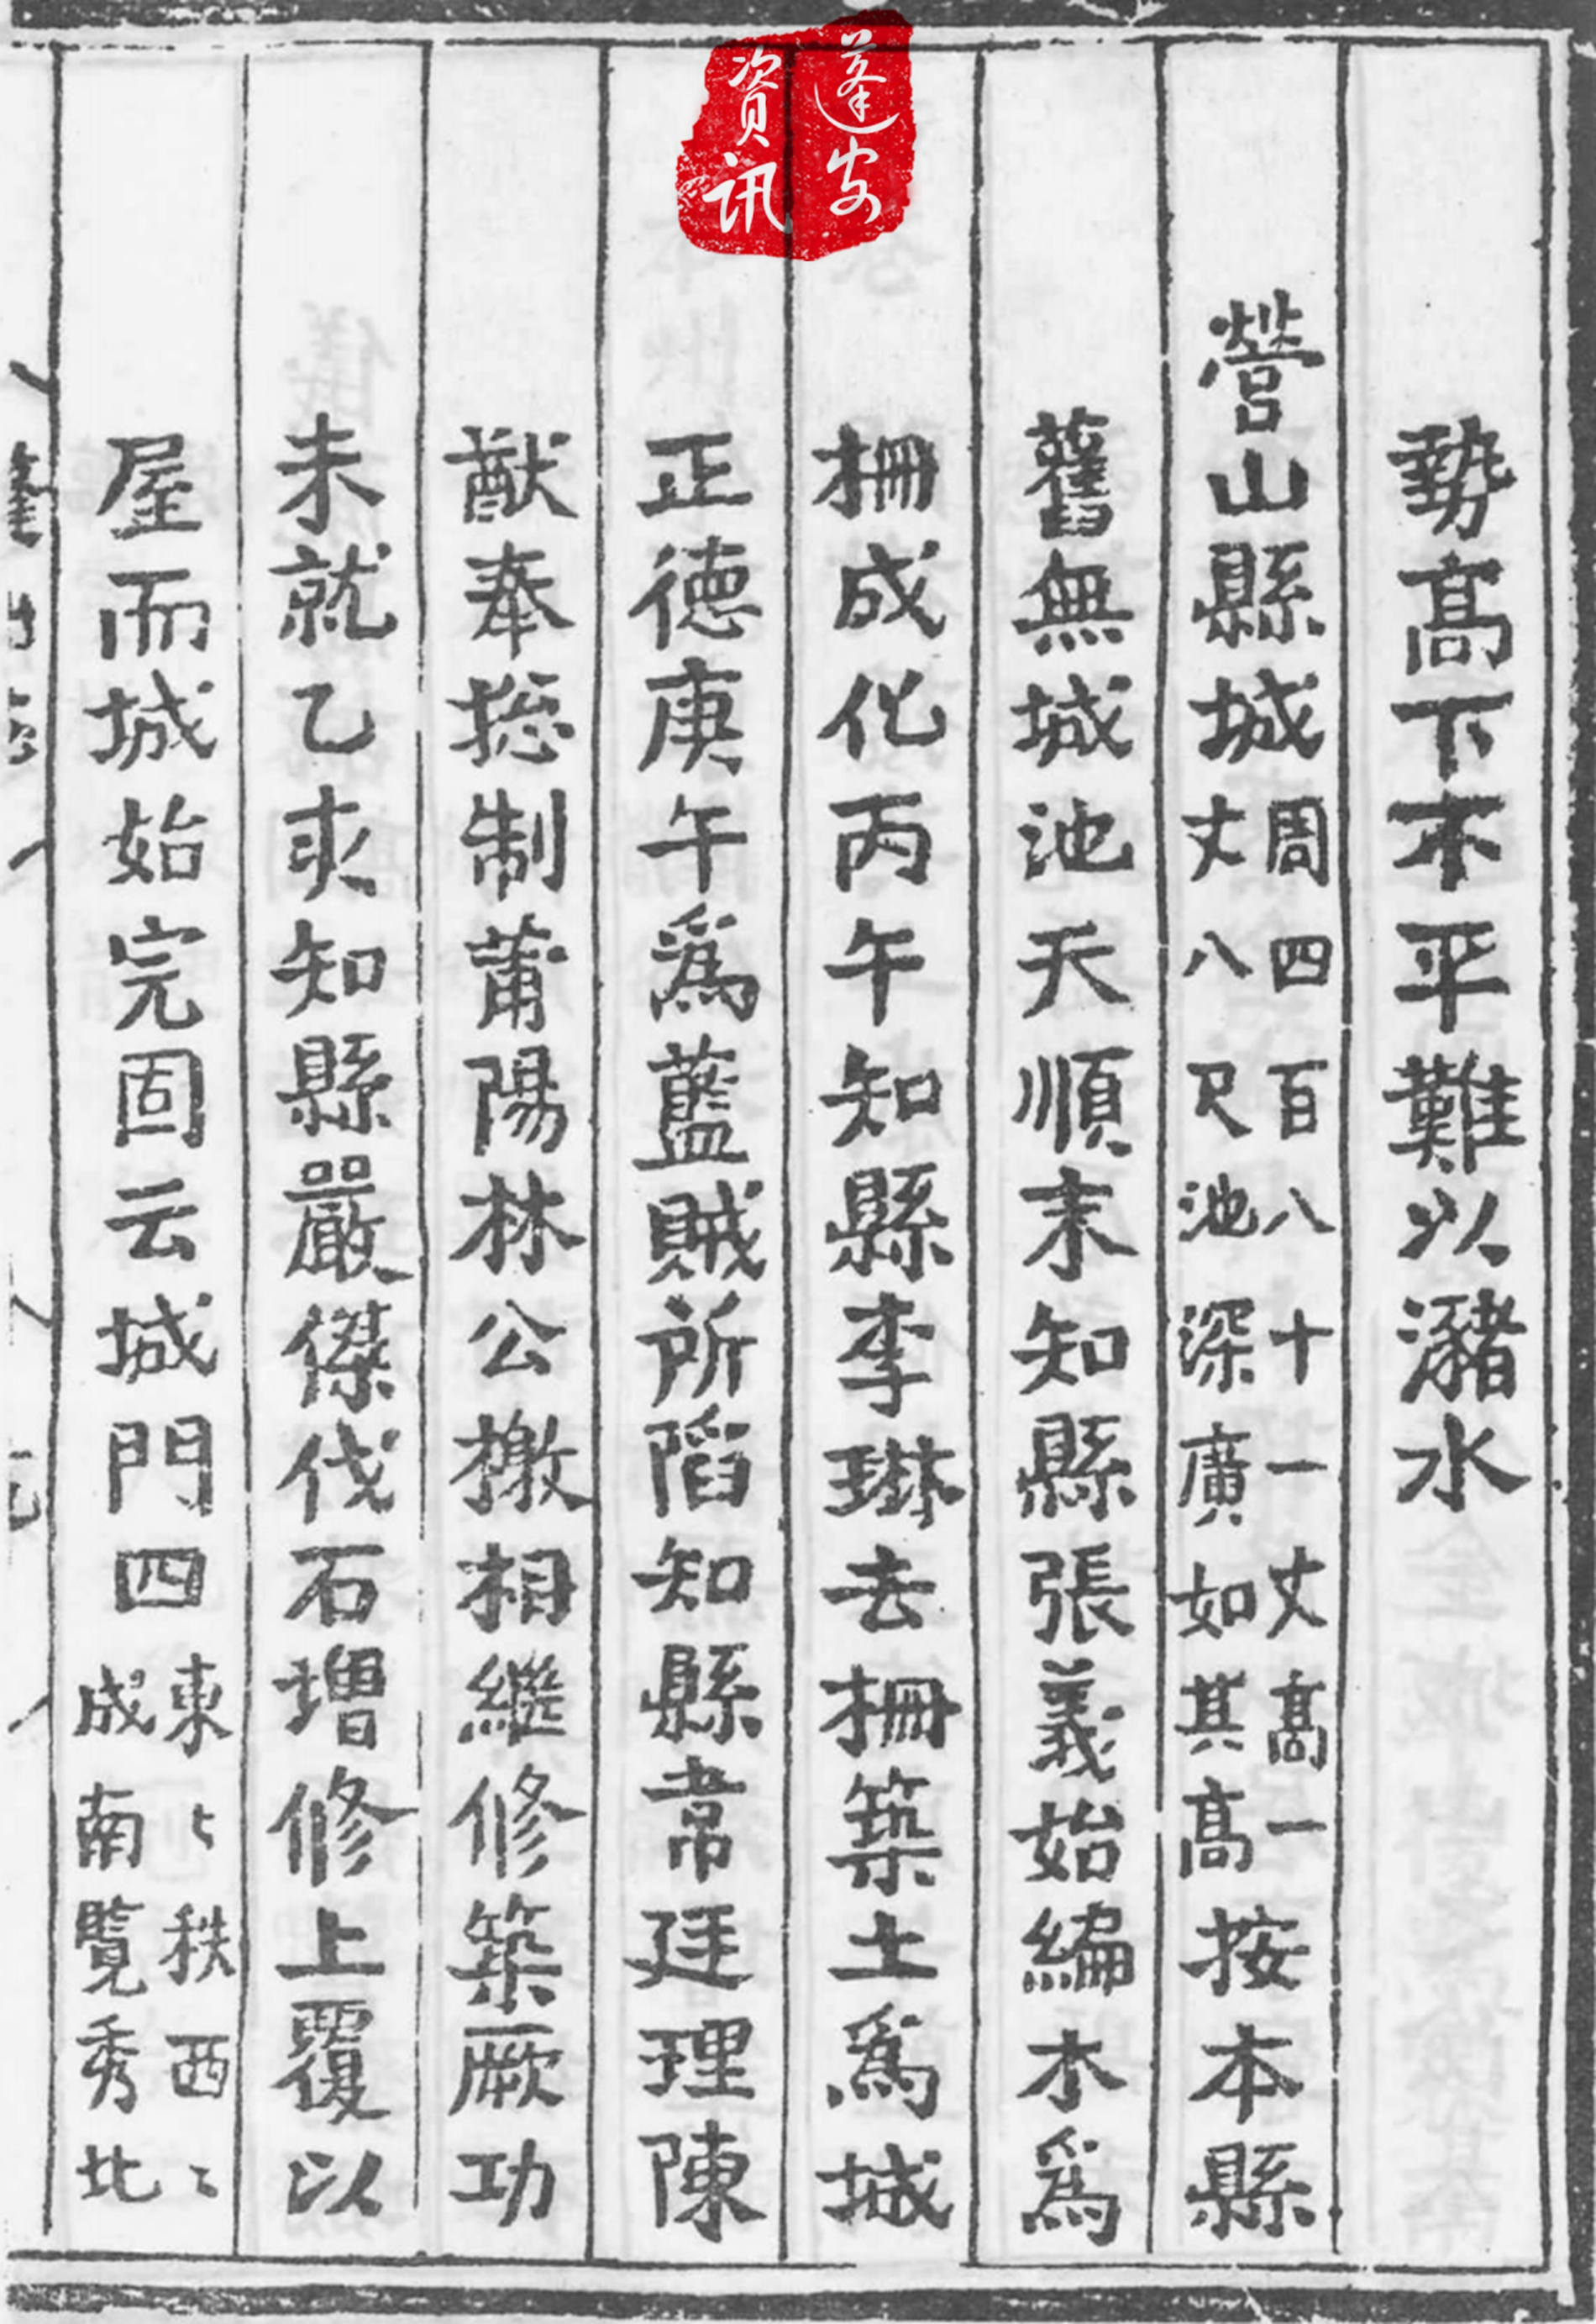 蓬安
資訊
勢髙下不平難以瀦水
營山縣城周四百八十一丈髙一丈八尺池深廣如其髙按本縣
舊無城池天順末知縣張義始編木爲
柵成化丙午知縣李琳去柵築土爲城
正德庚午爲藍賊所䧟知縣常廷理陳
猷奉捴制莆陽林公檄相繼修築厥功
未就乙亥知縣嚴傑伐石增修上覆以
屋而城始完固云城門四東〻秩西〻成南覽秀北